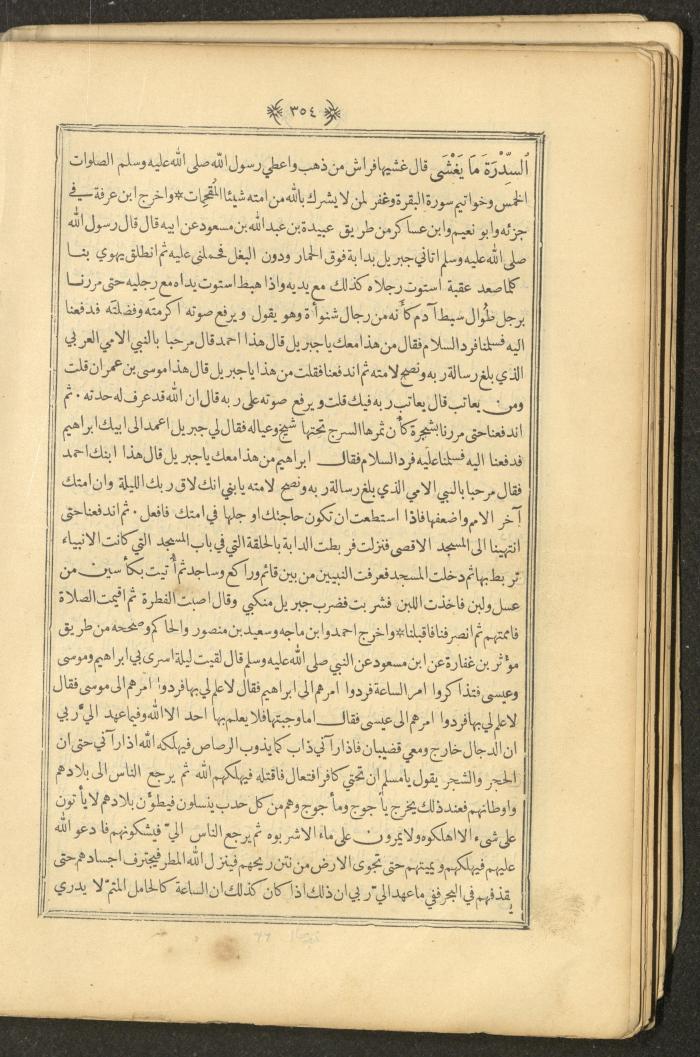 ٣٥٤
ٱلسِّدْرَةَ مَا يَغْشَى قال غشيها فراش من ذهب واعطي رسول الله صلى الله عليه وسلم الصلوات
الخمس وخواتيم سورة البقرة وغفر لمن لا يشرك بالله من امته شيئا المُقحمات * واخرج ابن عرفة في
جزئه وابو نعيم وابن عساكر من طريق عبيدة بن عبد الله بن مسعود عن ابيه قال قال رسول الله
صلى الله عليه وسلم اتاني جبريل بدابة فوق الحمار ودون البغل فحملني عليه ثم انطلق يهوي بنا
كلما صعد عقبة استوت رجلاه كذلك مع يديه واذا هبط استوت يداه مع رجليه حتى مررنا
برجل طُوال سبط آدم كأنه من رجال شنوأة وهو يقول ويرفع صوته اكرمته وفضلته فدفعنا
اليه فسلمنا فرد السلام فقال من هذا معك يا جبريل قال هذا احمد قال مرحبا بالنبي الامي العربي
الذي بلغ رسالة ربه ونصح لامته ثم اندفعنا فقلت من هذا يا جبريل قال هذا موسى بن عمران قلت
ومن يعاتب قال يعاتب ربه فيك قلت ويرفع صوته على ربه قال ان الله قد عرف له حدته . ثم
اندفعنا حتى مررنا بشجرة كأن ثمرها السرج تحتها شيخ وعياله فقال لي جبريل اعمد الى ابيك ابراهيم
فدفعنا اليه فسلمنا عليه فرد السلام فقال ابراهيم من هذا معك يا جبريل قال هذا ابنك احمد
فقال مرحبا بالنبي الامي الذي بلغ رسالة ربه ونصح لامته يا بني انك لاق ربك الليلة وان امتك
آخر الامم واضعفها فاذا استطعت ان تكون حاجتك او جلها في امتك فافعل . ثم اندفعنا حتى
انتهينا الى المسجد الاقصى فنزلت فربطت الدابة بالحلقة التي في باب المسجد التي كانت الانبياء
تربط بها ثم دخلت المسجد فعرفت النبيين من بين قائم وراكع وساجد ثم أُتيت بكأسين من
عسل ولبن فاخذت اللبن فشربت فضرب جبريل منكبي وقال اصبت الفطرة ثم اقيمت الصلاة
فاممتهم ثم انصرفنا فاقبلنا * واخرج احمد وابن ماجه وسعيد بن منصور والحاكم وصححه من طريق
مؤثر بن غفارة عن ابن مسعود عن النبي صلى الله عليه وسلم قال لقيت ليلة اسري بي ابراهيم وموسى
وعيسى فتذاكروا امر الساعة فردوا امرهم الى ابراهيم فقال لا علم لي بها فردوا امرهم الى موسى فقال
لا علم لي بها فردوا امرهم الى عيسى فقال اما وجبتها فلا يعلم بها احد الا الله وفيما عهد اليّ ربي
ان الدجال خارج ومعي قضيبان فاذا رآني ذاب كما يذوب الرصاص فيهلكه الله اذا رآني حتى ان
الحجر والشجر يقول يا مسلم ان تحتي كافرا فتعال فاقتله فيهلكهم الله ثم يرجع الناس الى بلادهم
واوطانهم فعند ذلك يخرج يأجوج ومأجوج وهم من كل حدب ينسلون فيطؤن بلادهم لا يأتون
على شيء الا اهلكوه ولا يمرون على ماء الا شربوه ثم يرجع الناس اليّ فيشكونهم فادعو الله
عليهم فيهلكهم ويميتهم حتى تجوى الارض من نتن ريحهم فينزل الله المطر فيجترف اجسادهم حتى
يقذفهم في البحر ففي ما عهد اليّ ربي ان ذلك اذا كان كذلك ان الساعة كالحامل المتمّ لا يدري